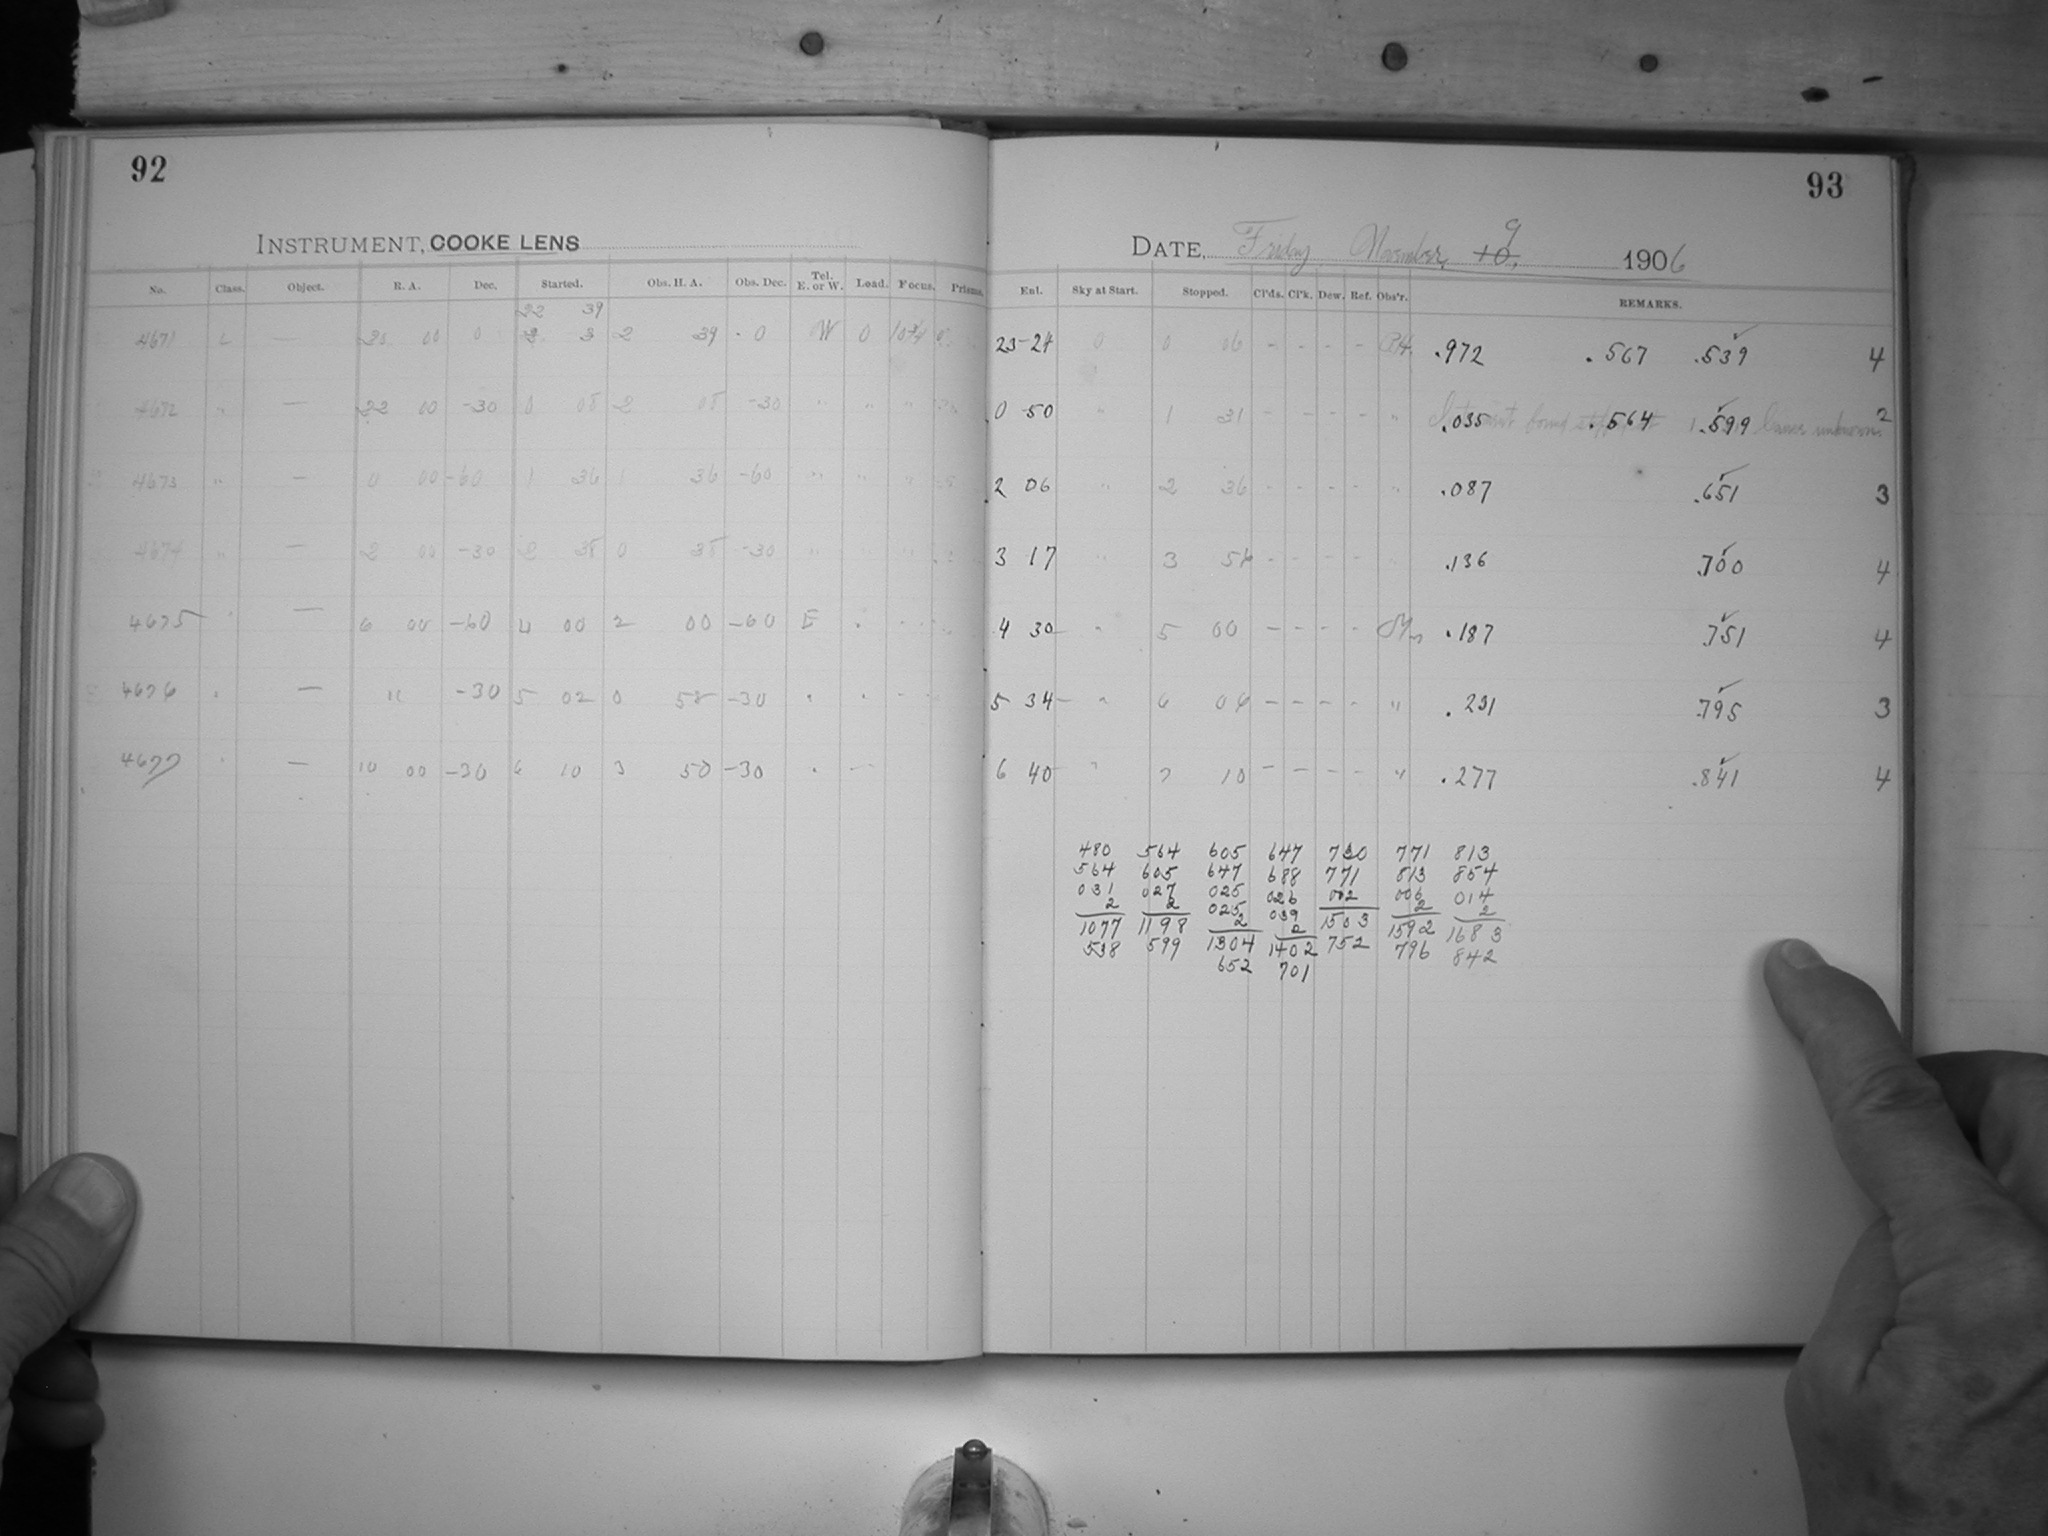 92
INSTRUMENT, COOKE LENS
No. Class. Object. R. A. Dec. Started. Obs. H. A. Obs. Dec. Tel. E. or W. Load. Focus. Prisms.
22 39
4671 20 00 0 2 39 0 W 0
4672 " — 22 00 -30 0 08 2 08 -30 " " "
4673 " — 0 00 -60 1 36 1 36 -60 " " "
4674 " — 2 00 -30 2 38 0 38 -30 " " "
4675 — 6 00 -60 4 00 2 00 -60 E
4676 — " -30 5 02 0 58 -30
4677 — 10 00 -30 6 10 3 50 -30
93
DATE, Friday November, 10, 9 1906
Ent. Sky at Start. Stopped. Cl'ds. Cl'k. Dew. Ref. Obs'r. REMARKS.
23-24 0 0 06 - - - - .972 .567 .539 4
0 50 " 1 31 - - - - " .035 .564 .599 cause unknown. 2
2 06 " 2 36 - - - - " .087 .651 3
3 17 " 3 - - - - .136 .700 4
4 30 " 5 00 - - - - .187 .751 4
5 34 " 6 04 - - - - " .231 .795 3
6 40 " 7 10 - - - - " .277 .841 4
480 564 605 647 730 771 813
564 605 647 688 771 813 854
031 027 025 026 002 006 014
2 2 025 039 2 2
1077 1198 2 2 1503 1592 1683
538 599 1304 1402 752 796 842
652 701